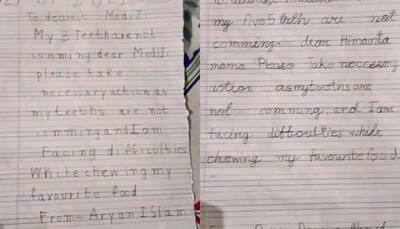 To dearest Modi Ji
My 3 Teeth are not
comming dear Modi Ji
please take
necessary action as
my teeths are not
comming and I am
Facing difficulties
While chewing my
favourite food
From- Aryan ISlam
my five 5 teeth are not
comming. dear Himanta
mama Please Take neccesary
action as my teeths are
not comming. and I am
facing difficulties while
chewing my favourite food.